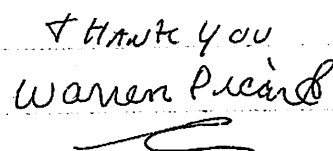 THANK YOU
Warren Picard